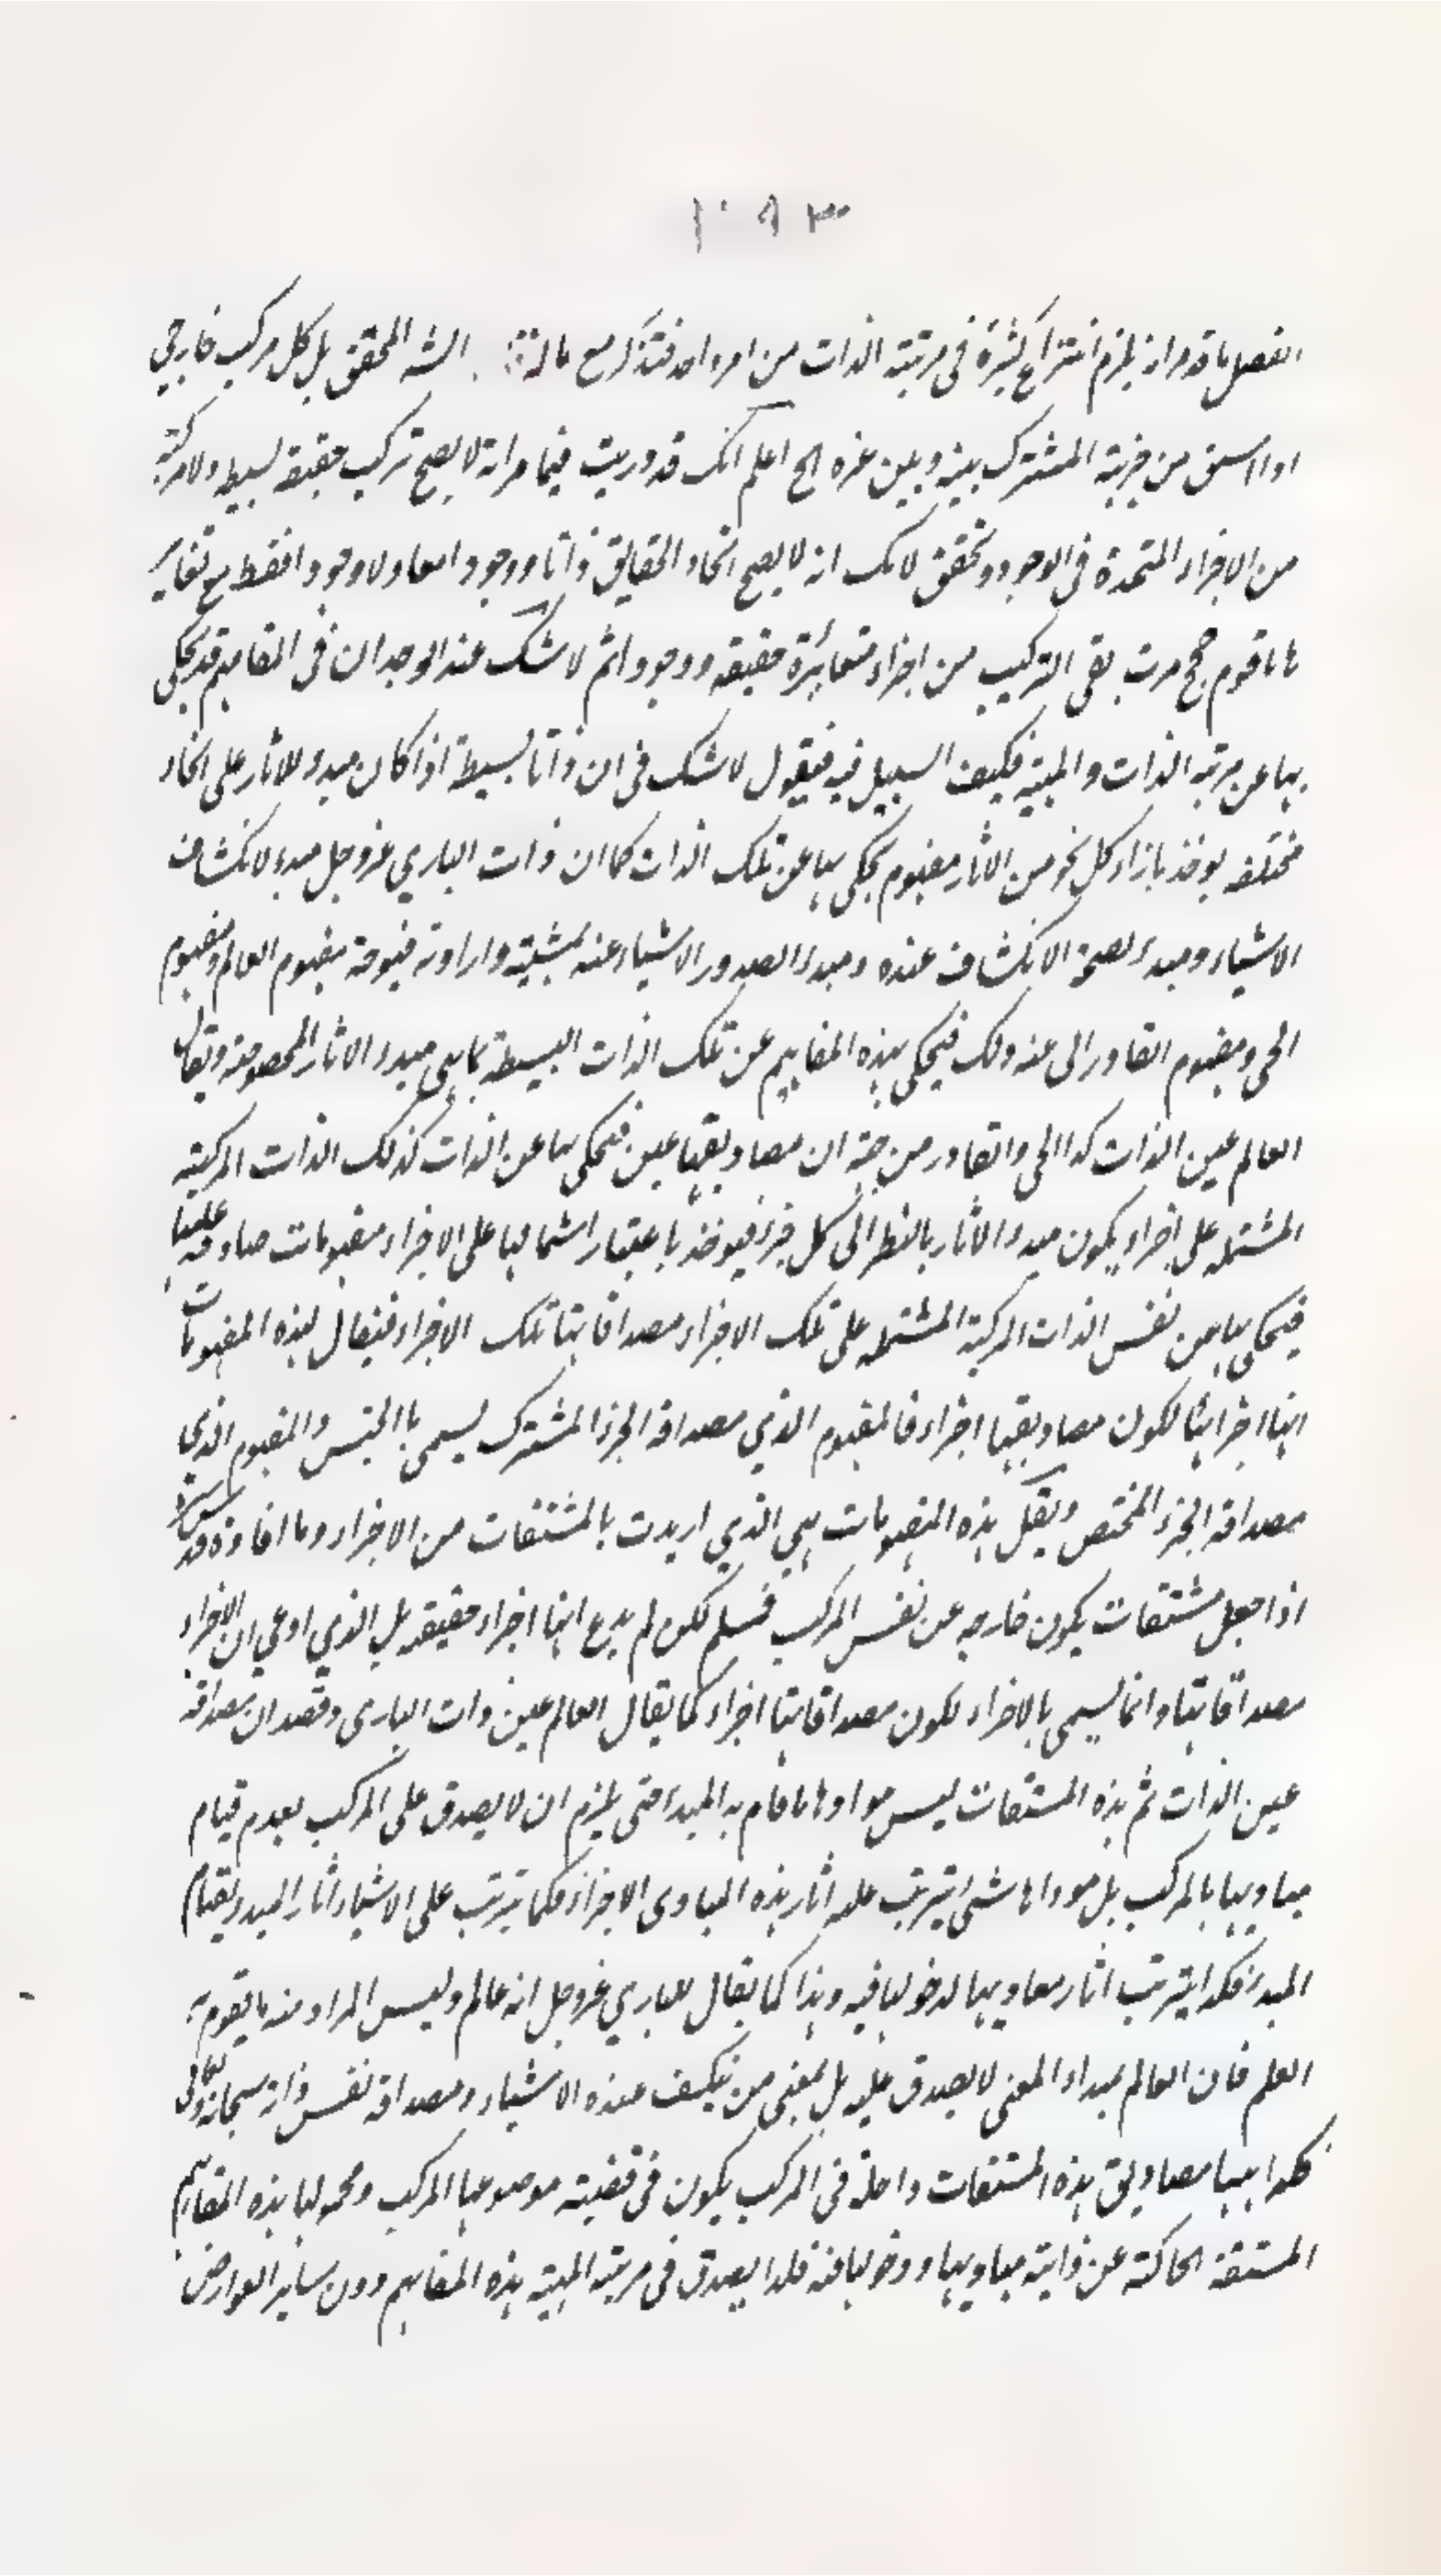 ١٠٩٣
الفصل ما قد مر انه يلزم انتزاع كثيرة فى مرتبة الذات من امر واحد فتذكر مع ماله الشه المحقق بل كل مركب خارجي
من جزئية المشترك بينه وبين غيره الخ اعلم انك قد دريت فيما مر انه لا يصح تركيب حقيقة بسيط ولا مركبة
من الاجزاء المتحدة فى الوجود وتحقق لك انه لا يصح اتحاد الحقايق ذاتا ووجودا معا ولا وجودا فقط مع تغاير
ما بقى التركيب من اجزاء متغائرة حقيقه ووجودا ثم لا شك عند الوجدان فى المفاهيم قد يحكى
بها عن مرتبة الذات والمهية فكيف السبيل فيه فيقول لا شك فى ان ذاتا بسيطة اذا كان مبدء للاثار على انحاء
مختلفه يوخذ بازاء كل نحو من الاثار مفهوم يحكى بها عن تلك الذات كما ان ذات البارى عز وجل مبدء لانكشاف
الاشياء ومبدء لصحة الانكشاف عنده ومبدء الصدور الاشياء عنه بمشيته وارادته فيوخذ مفهوم العالم ومفهوم
الحى ومفهوم القادر الى غير ذلك فيحكى بهذه المفاهيم عن تلك الذات البسيطة بما هى مبدء الاثار المخصوصة ويقال
العالم عين الذات كذا الحى والقادر من جهة ان مصاديقها عين فتحكى بها عن الذات كذلك الذات المركبة
المشتمله على اجزاء يكون مبدء الاثار بالنظر الى كل جزء فيوخذ باعتبار اشتمالها على الاجزاء مفهومات صادقه عليها
فيحكى بها عن نفس الذات المركبة المشتمله على تلك الاجزاء مصداقاتها تلك الاجزاء فيقال لهذه المفهومات
انها اجزائها لكون مصاديقها اجزاء فالمفهوم الذي مصداقه الجزء المشترك يسمى باالجنس والمفهوم الذى
مصداقه الجزء المختص هذه المفهومات هى الذي اريدت بالمشتقات من الاجزاء وما افاده قدس سره
اذا جعل مشتقات يكون خارجه عن نفس المركب فمسلم لكن لم يدع انها اجزاء حقيقه بل الذي ادعى ان الاجزاء
مصداقاتها وانما يسمى بالاجزاء لكون مصداقاتها اجزاء كما يقال العالم عين ذات البارى وقصد ان مصداقه
عين الذات ثم هذه المشتقات ليس موادها ما قام به المبدء حتى يلزم ان لا يصدق على المركب بعدم قيام
مباديها بالمركب بل موداها شئ يترتب عليه اثار هذه المبادى الاجزاء فكما يترتب على الاشياء اثار المبدء بقيام
المبدء فكذا يترتب اثار مباديها لدخولها فيه وهذا كما يقال للبارى عز وجل انه عالم وليس المراد منه ما يقوم به
العلم فان العالم بهذا المعنى لا يصدق عليه بل بمعنى من ينكشف عنده الاشياء ومصداقه نفس ذاته سبحانه وتعالى
فكذا ههنا مصاديق هذه المشتقات داخلة فى المركب يكون فى قضية موضوعها المركب ومحمولها هذه المفاهيم
المشتقة الحاكية عن ذاتية مباديها ودخولها فيه فلذا يصدق فى مرتبة المهية هذه المفاهيم دون ساير العوارض